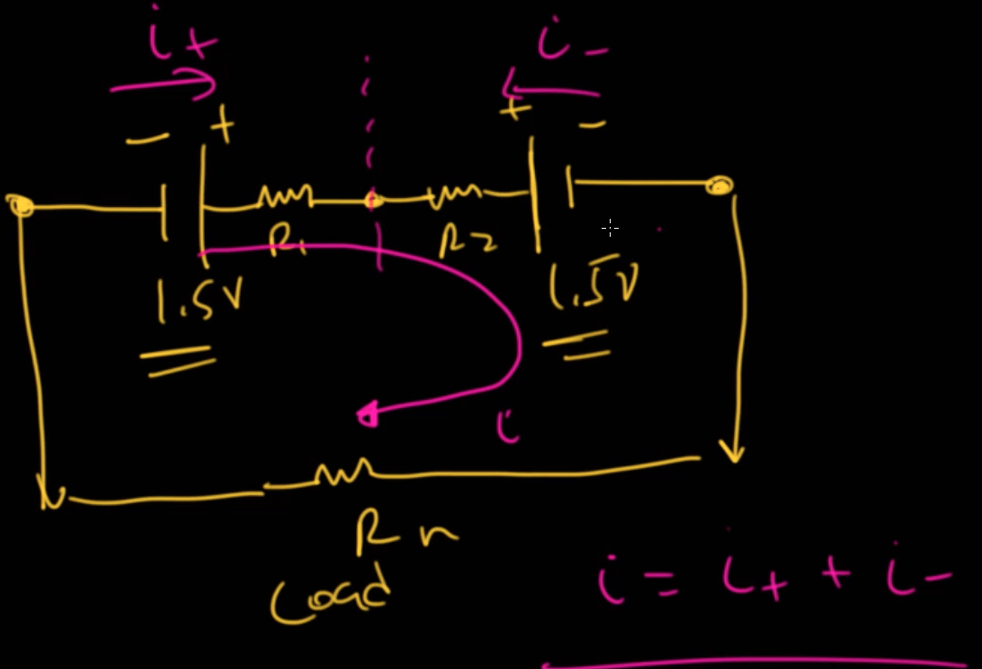 i+ i-
- + + -
R1 R2
1.5V 1.5V
i
R n
Load
i = i+ + i-